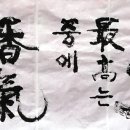 香氣
중에
最高는